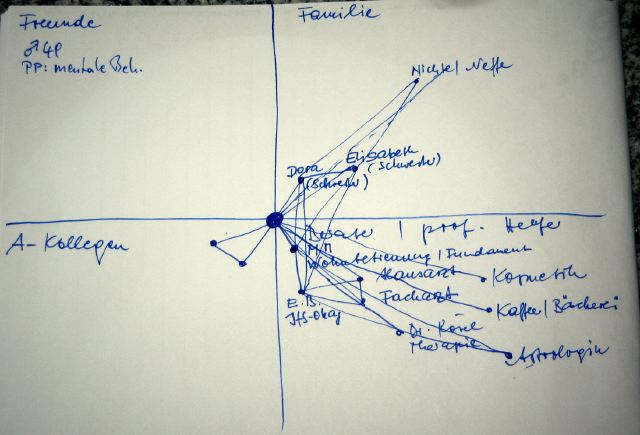 Freunde
♂ 41
PP: mentale Beh.
Familie
Nichte/ Neffe
Elisabeth
(Schwester)
Dora
(Schwester)
A-Kollegen
Berater / prof. Helfer
Wohnbetreuung / Fundament
Hausarzt
Kosmetik
Facharzt
E. B.
Kaffee / Bäckerei
Dr. Rösel
Therapie
Astrologin